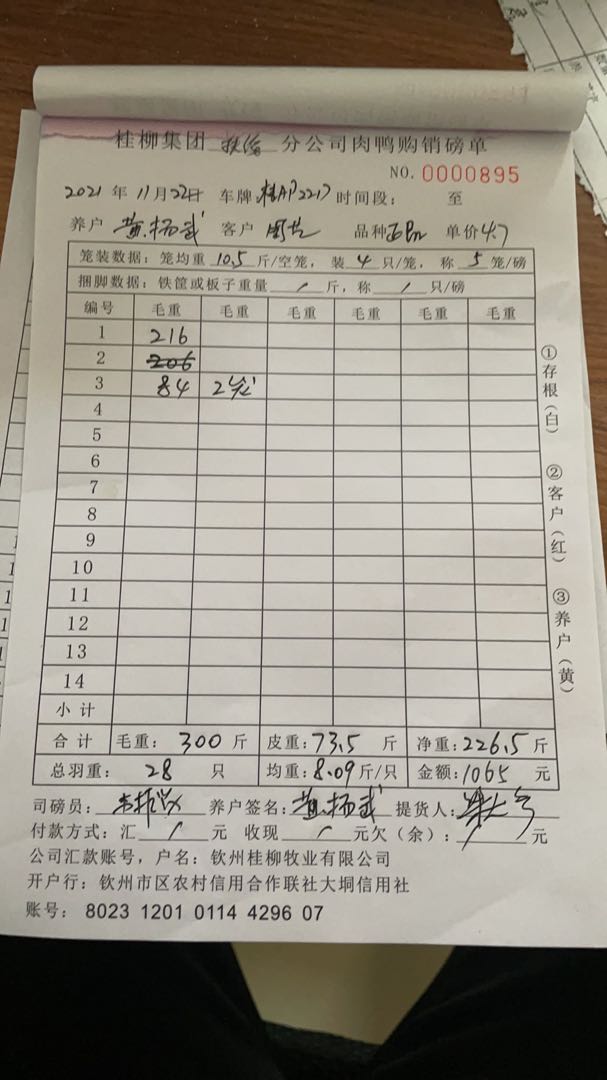 桂柳集团 分公司肉鸭购销磅单
NO. 0000895
2021 年 11月22日 车牌 桂AP2217 时间段： 至
养户 黄杨武 客户 周芸 品种 单价 4.7
笼装数据：笼均重 10.5 斤/空笼，装 4 只/笼，称 5 笼/磅
捆脚数据：铁筐或板子重量 / 斤，称 / 只/磅
编号 毛重 毛重 毛重 毛重 毛重 毛重
1 216
2 206
3 84 2笼
4
5
6
7
8
9
10
11
12
13
14
小计
合计 毛重：300 斤 皮重：73.5 斤 净重：226.5 斤
总羽重：28 只 均重：8.09 斤/只 金额：1065 元
司磅员： 养户签名：黄杨武 提货人：
付款方式：汇 / 元 收现 / 元欠（余）： / 元
公司汇款账号，户名：钦州桂柳牧业有限公司
开户行：钦州市区农村信用合作联社大垌信用社
账号： 8023 1201 0114 4296 07
①存根（白）
②客户（红）
③养户（黄）